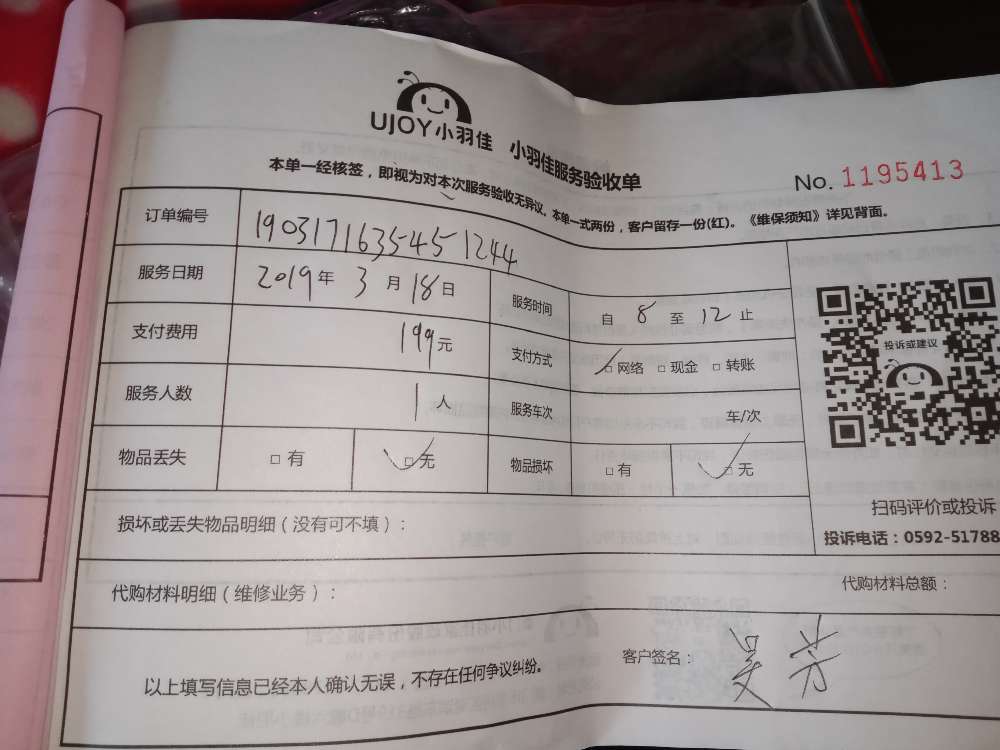 UJOY小羽佳 小羽佳服务验收单
No. 1195413
本单一经核签，即视为对本次服务验收无异议。本单一式两份，客户留存一份(红)。《维保须知》详见背面。
订单编号 190317163545 1244
服务日期 2019年 3月 18日 服务时间 自 8 至 12 止
支付费用 199元 支付方式 □网络 □现金 □转账
服务人数 1人 服务车次 车/次
物品丢失 □有 □无 物品损坏 □有 □无
投诉或建议
扫码评价或投诉
投诉电话：0592-51788
损坏或丢失物品明细（没有可不填）：
代购材料明细（维修业务）： 代购材料总额：
以上填写信息已经本人确认无误，不存在任何争议纠纷。 客户签名： 吴芳